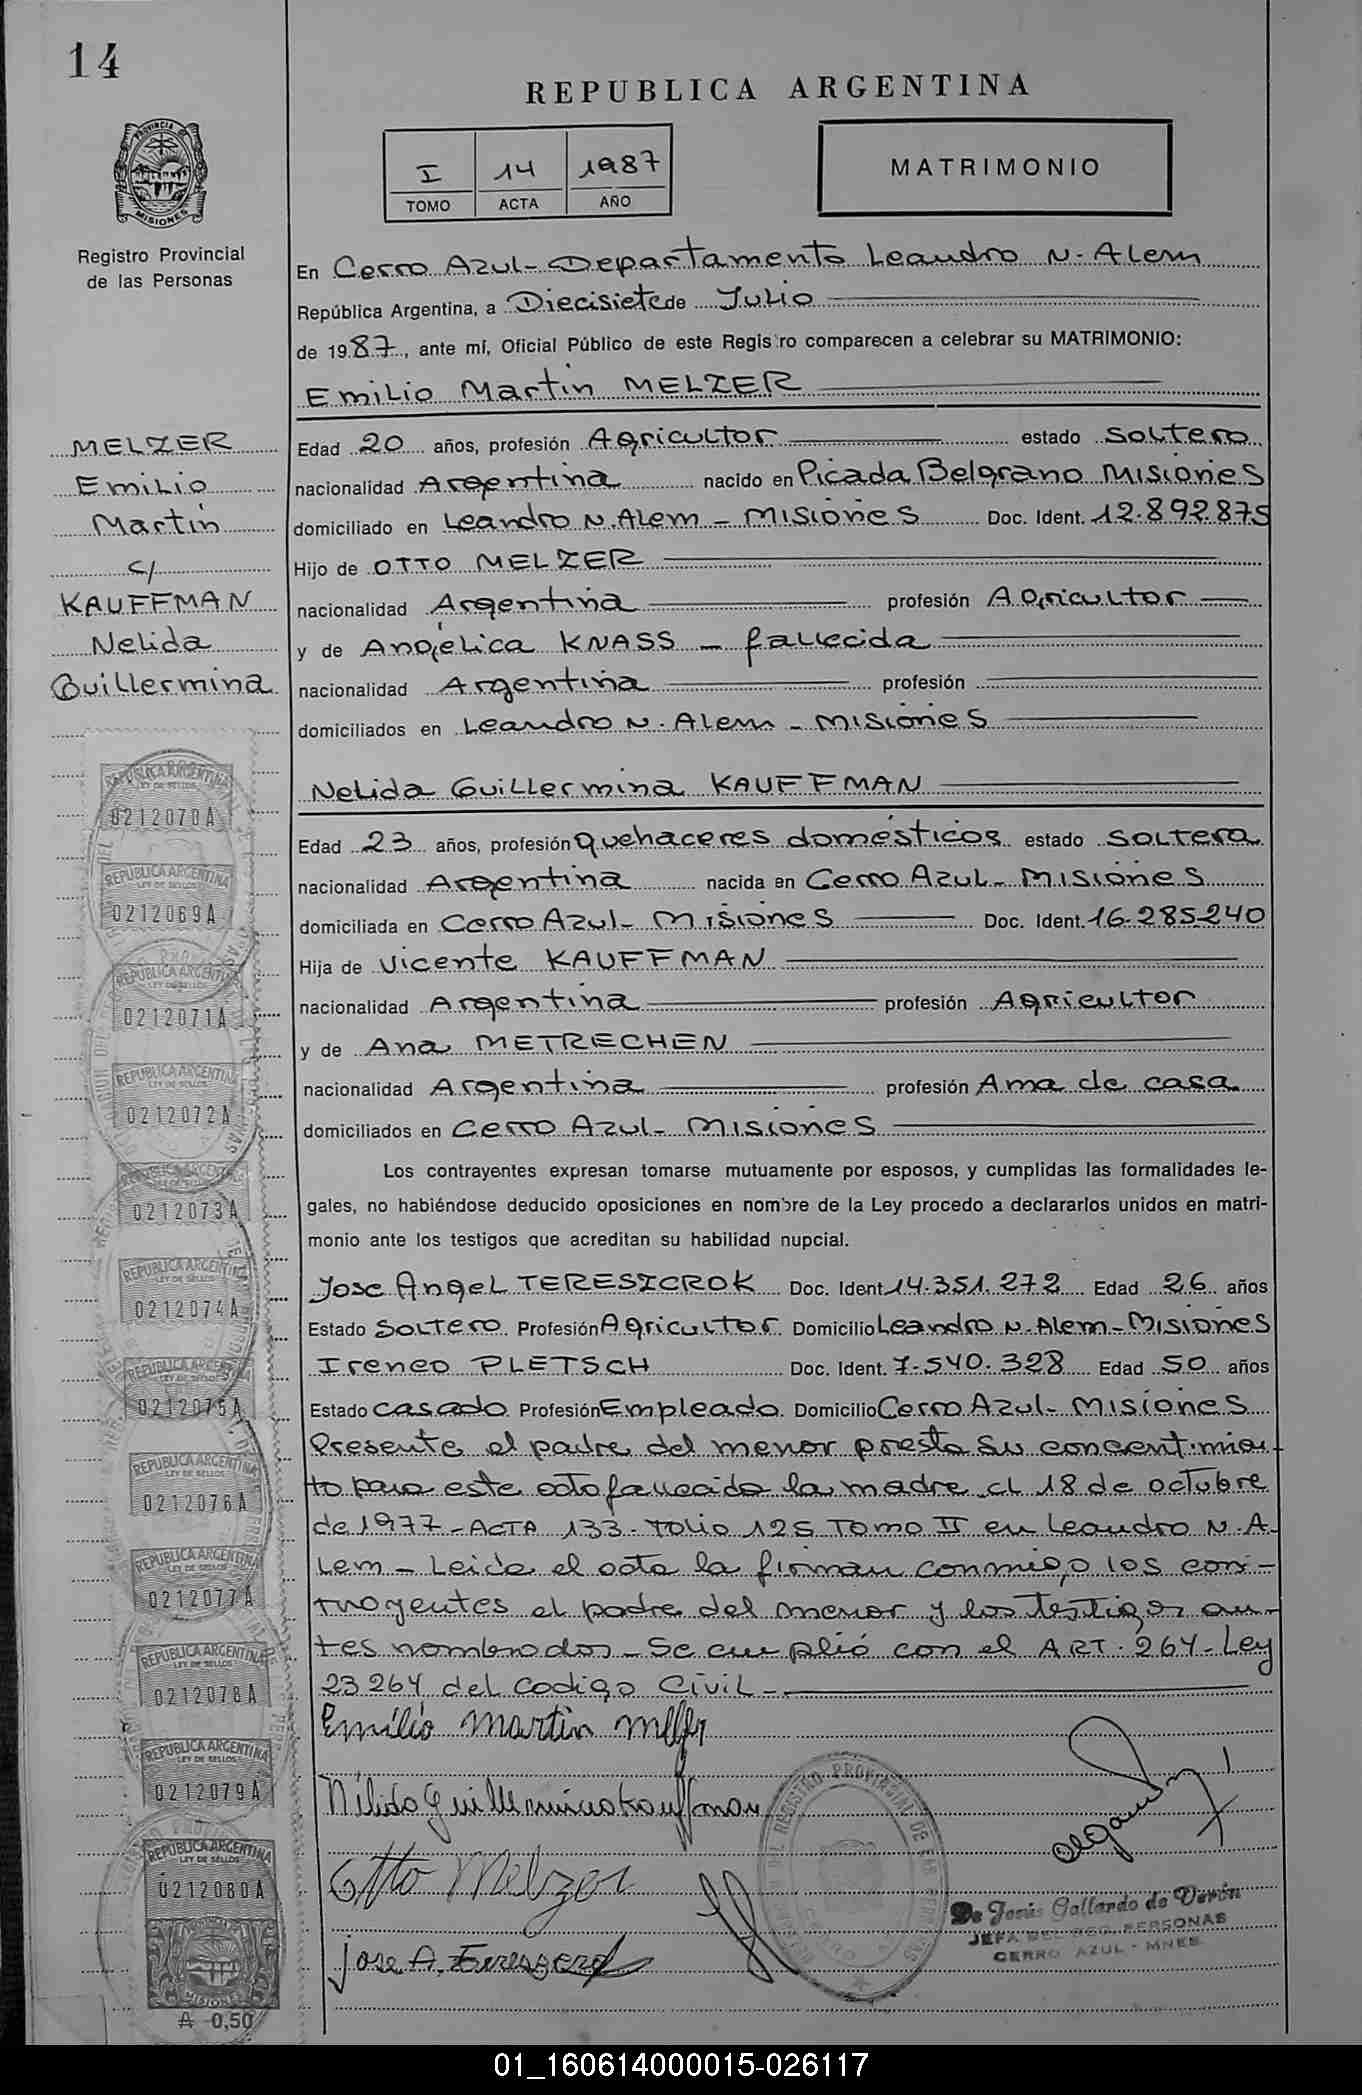 14
REPUBLICA ARGENTINA
PROVINCIA DE
MISIONES
Registro Provincial
de las Personas
I 14 1987
TOMO ACTA AÑO
MATRIMONIO
En Cerro Azul - Departamento Leandro N. Alem
República Argentina, a Diecisiete de Julio
de 1987, ante mí, Oficial Público de este Registro comparecen a celebrar su MATRIMONIO:
Emilio Martin MELZER
MELZER
Emilio
Martin
c/
KAUFFMAN
Nelida
Guillermina
Edad 20 años, profesión Agricultor estado Soltero
nacionalidad Argentina nacido en Picada Belgrano Misiones
domiciliado en Leandro N. Alem - Misiones Doc. Ident. 12.892.875
Hijo de OTTO MELZER
nacionalidad Argentina profesión Agricultor
y de Angélica KNASS - fallecida
nacionalidad Argentina profesión
domiciliados en Leandro N. Alem - Misiones
Nelida Guillermina KAUFFMAN
Edad 23 años, profesión quehaceres domésticos estado Soltera
nacionalidad Argentina nacida en Cerro Azul - Misiones
domiciliada en Cerro Azul - Misiones Doc. Ident. 16.285.240
Hija de Vicente KAUFFMAN
nacionalidad Argentina profesión Agricultor
y de Ana METRECHEN
nacionalidad Argentina profesión Ama de casa
domiciliados en Cerro Azul - Misiones
Los contrayentes expresan tomarse mutuamente por esposos, y cumplidas las formalidades le-
gales, no habiéndose deducido oposiciones en nombre de la Ley procedo a declararlos unidos en matri-
monio ante los testigos que acreditan su habilidad nupcial.
Jose Angel TERESZCROK Doc. Ident. 14.351.272 Edad 26 años
Estado Soltero Profesión Agricultor Domicilio Leandro N. Alem - Misiones
Ireneo PLETSCH Doc. Ident. 7.540.328 Edad 50 años
Estado casado Profesión Empleado Domicilio Cerro Azul - Misiones
Presente el padre del menor presta su concentimien-
to para este acto fallecida la madre el 18 de octubre
de 1977 - ACTA 133 - Folio 125 Tomo II en Leandro N. A-
lem - Leida el acta la firman conmigo los con-
trayentes el padre del menor y los testigos an-
tes nombrados - Se cumplió con el ART. 264 - Ley
23264 del Codigo Civil -
Emilio Martin Melzer
Nélida Guillermina Kauffman
Otto Melzer
Jose A. Tereszcrok
De Jesús Gallardo de Verón
JEFA DEL REG. PERSONAS
CERRO AZUL - MNES.
REPUBLICA ARGENTINA
LEY DE SELLOS
0212070A
REPUBLICA ARGENTINA
LEY DE SELLOS
0212069A
REPUBLICA ARGENTINA
LEY DE SELLOS
0212071A
REPUBLICA ARGENTINA
LEY DE SELLOS
0212072A
REPUBLICA ARGENTINA
0212073A
REPUBLICA ARGENTINA
LEY DE SELLOS
0212074A
REPUBLICA ARGENTINA
LEY DE SELLOS
0212075A
REPUBLICA ARGENTINA
LEY DE SELLOS
0212076A
REPUBLICA ARGENTINA
LEY DE SELLOS
0212077A
REPUBLICA ARGENTINA
LEY DE SELLOS
0212078A
REPUBLICA ARGENTINA
LEY DE SELLOS
0212079A
REPUBLICA ARGENTINA
LEY DE SELLOS
0212080A
MISIONES
A 0,50
01_160614000015-026117